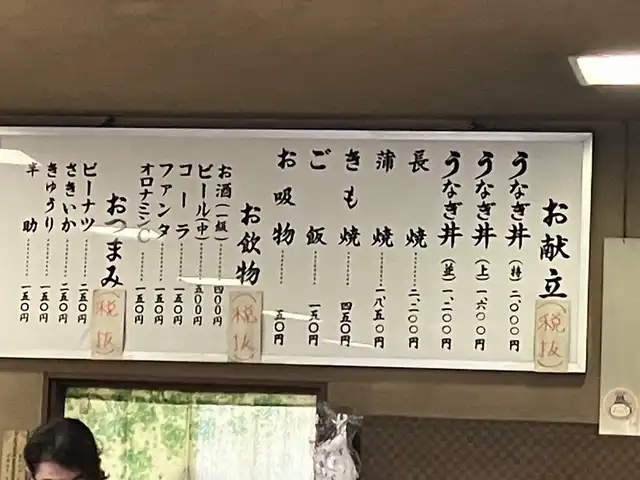 お献立
(税抜)
うなぎ丼(特)二、〇〇〇円
うなぎ丼(上)一、六〇〇円
うなぎ丼(並)一、二〇〇円
長焼……二、二〇〇円
蒲焼……一、八五〇円
きも焼……四五〇円
ご飯……一五〇円
お吸物……五〇円
お飲物
(税抜)
お酒(一級)……四〇〇円
ビール(中)……五〇〇円
コーラ……一五〇円
ファンタ……一五〇円
オロナミンC……一五〇円
おつまみ
(税抜)
ピーナツ……二五〇円
さきいか……二五〇円
きゅうり……一五〇円
半助……一五〇円